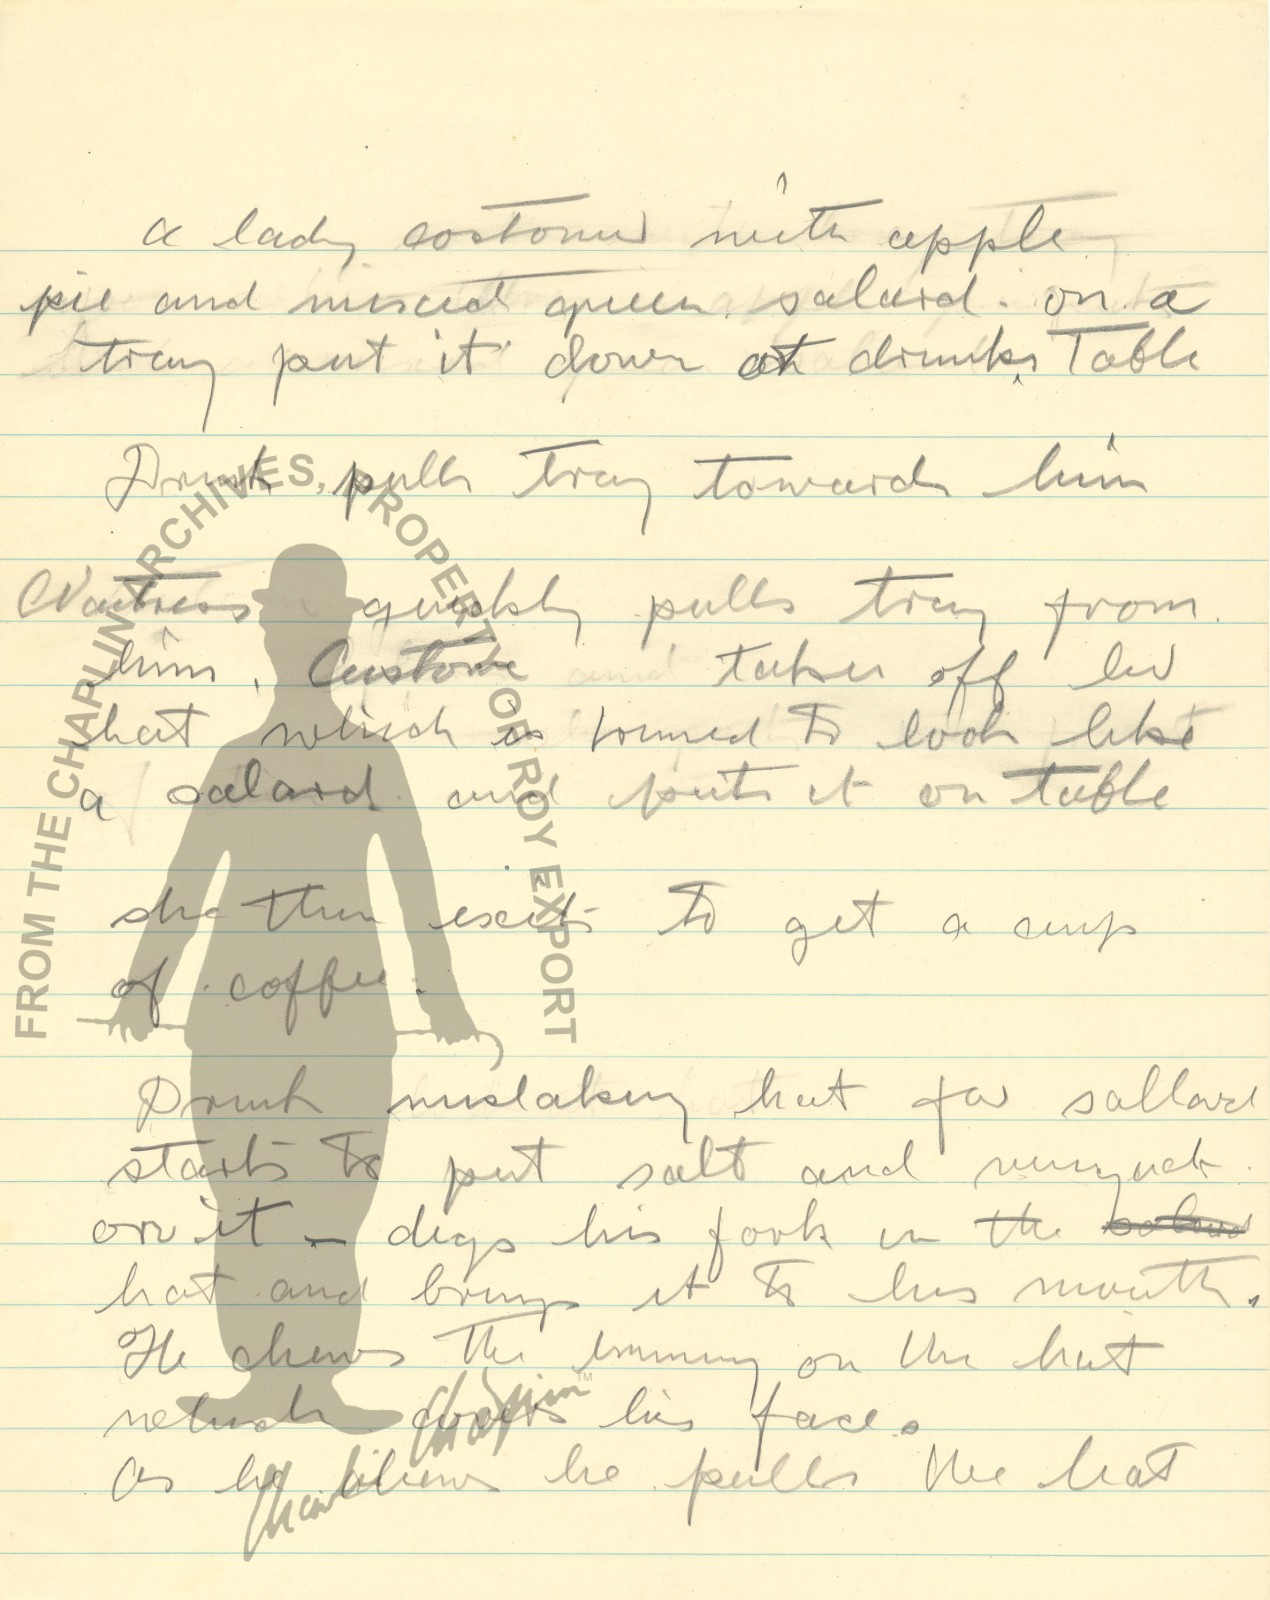 a lady costomer with apple
pie and mixed green salard. on a
tray put it down at drunks Table
Drunk, pulls tray towards him
Waitress quickly pulls tray from
him, Custome takes off her
hat which is trimmed to look like
a salard. and puts it on table
she then exits to get a cup
of coffee.
Drunk mistaking hat for sallard
starts to put salt and
on it – digs his fork in the salard
hat and brings it to his mouth.
He chews the trimming on the hat
which covers his face.
As he chews he pulls the hat
FROM THE CHAPLIN ARCHIVES, PROPERTY OF ROY EXPORT
Charlie Chaplin™